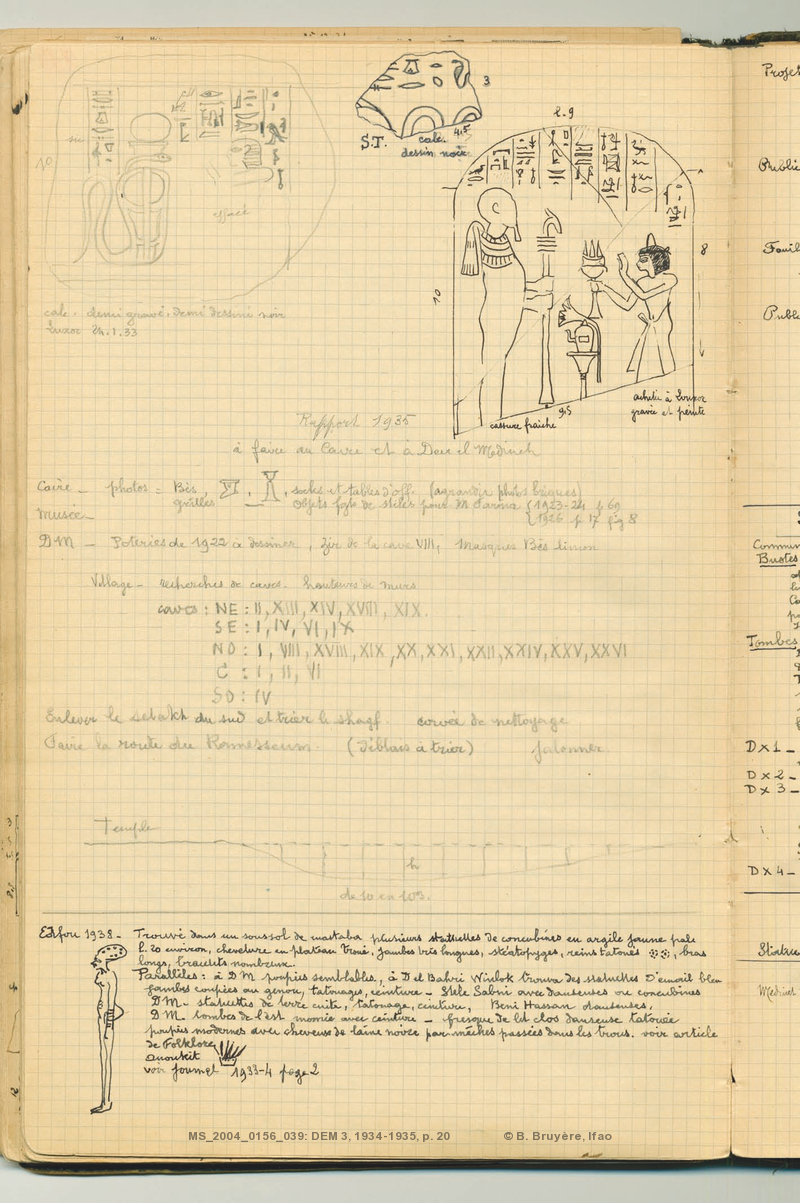 3
S.T.
calc. 4.5
dessin noir
l. 9
10
8
effacé
calc. demi gravé, demi dessiné noir
Luxor 24.1.33
10
9.5
cassure fraîche
acheté à Louxor
gravée et peinte
Rapport 1935
à faire au Caire et à Deir el Médineh
Caire _ photos = Bès, socles et tables d'off. (agrandir photos briques)
grilles _ Objets fgts de stèles pour M { 1923-24 p 69
Musée _ { 1926 p 17 fig 8
DM _ Poteries de 1922 à dessiner, Zir de la cave VIII, Masques Bès limon
Village _ recherches de caves. hauteurs de murs
caves : NE : II, XIII, XIV, XVIII, XIX.
SE : I, IV, VI, IX
NO : I, VIII, XVIII, XIX, XX, XXI, XXII, XXIV, XXV, XXVI
C : I, II, VI
SO : IV
Enlever le sebakh du sud et trier le shagf. corvée de nettoyage
Faire la route du Ramesseum. (Déblais à trier) jalonner
Temple
h
de 10 en 10 m.
Edfou 1938 - Trouvé dans un sous sol de mastaba plusieurs statuettes de concubines en argile jaune pale
l. 20 environ, chevelure en plateau troué, jambes très longues, stéatopyges, reins tatoués, bras
longs, bracelets nombreux.
Parallèles : à DM poupées semblables, à D el Bahri Winlok trouva des statuettes d'émail bleu
jambes coupées au genou, tatouages, ceinture _ Stèle Sabni avec danseuses ou concubines
DM _ statuettes de terre cuite, tatouage, ceinture, Beni Hassan danseuses,
DM tombes de l'est momie avec ceinture _ fresque de lit clos danseuse tatouée
poupées modernes avec cheveux de laine noire par mèches passées dans les trous. voir article
de Folklore
anoukit
voir journal 1933-4 page 2
MS_2004_0156_039: DEM 3, 1934-1935, p. 20 © B. Bruyère, Ifao
Projet
Publi
Fouil
Publ
Commun
Bustes
Tombes
DX1 _
DX2 _
DX3 _
DX4 _
Medinet